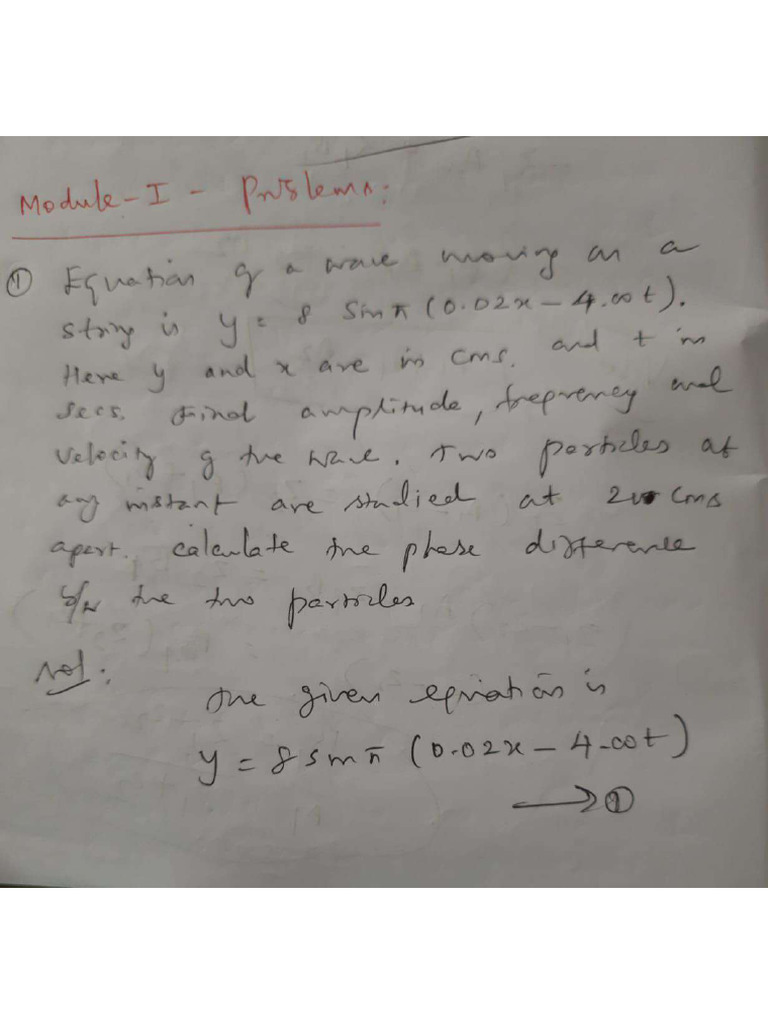 Module-I - Problems:
① Equation of a wave moving on a
string is y = 8 sin π (0.02x - 4.00t).
Here y and x are in cms. and t in
secs. Find amplitude, frequency and
velocity of the wave. Two particles at
any instant are studied at 20 cms
apart. calculate the phase difference
b/w the two particles
Sol:
The given equation is
y = 8 sin π (0.02x - 4.00t)
→ ①